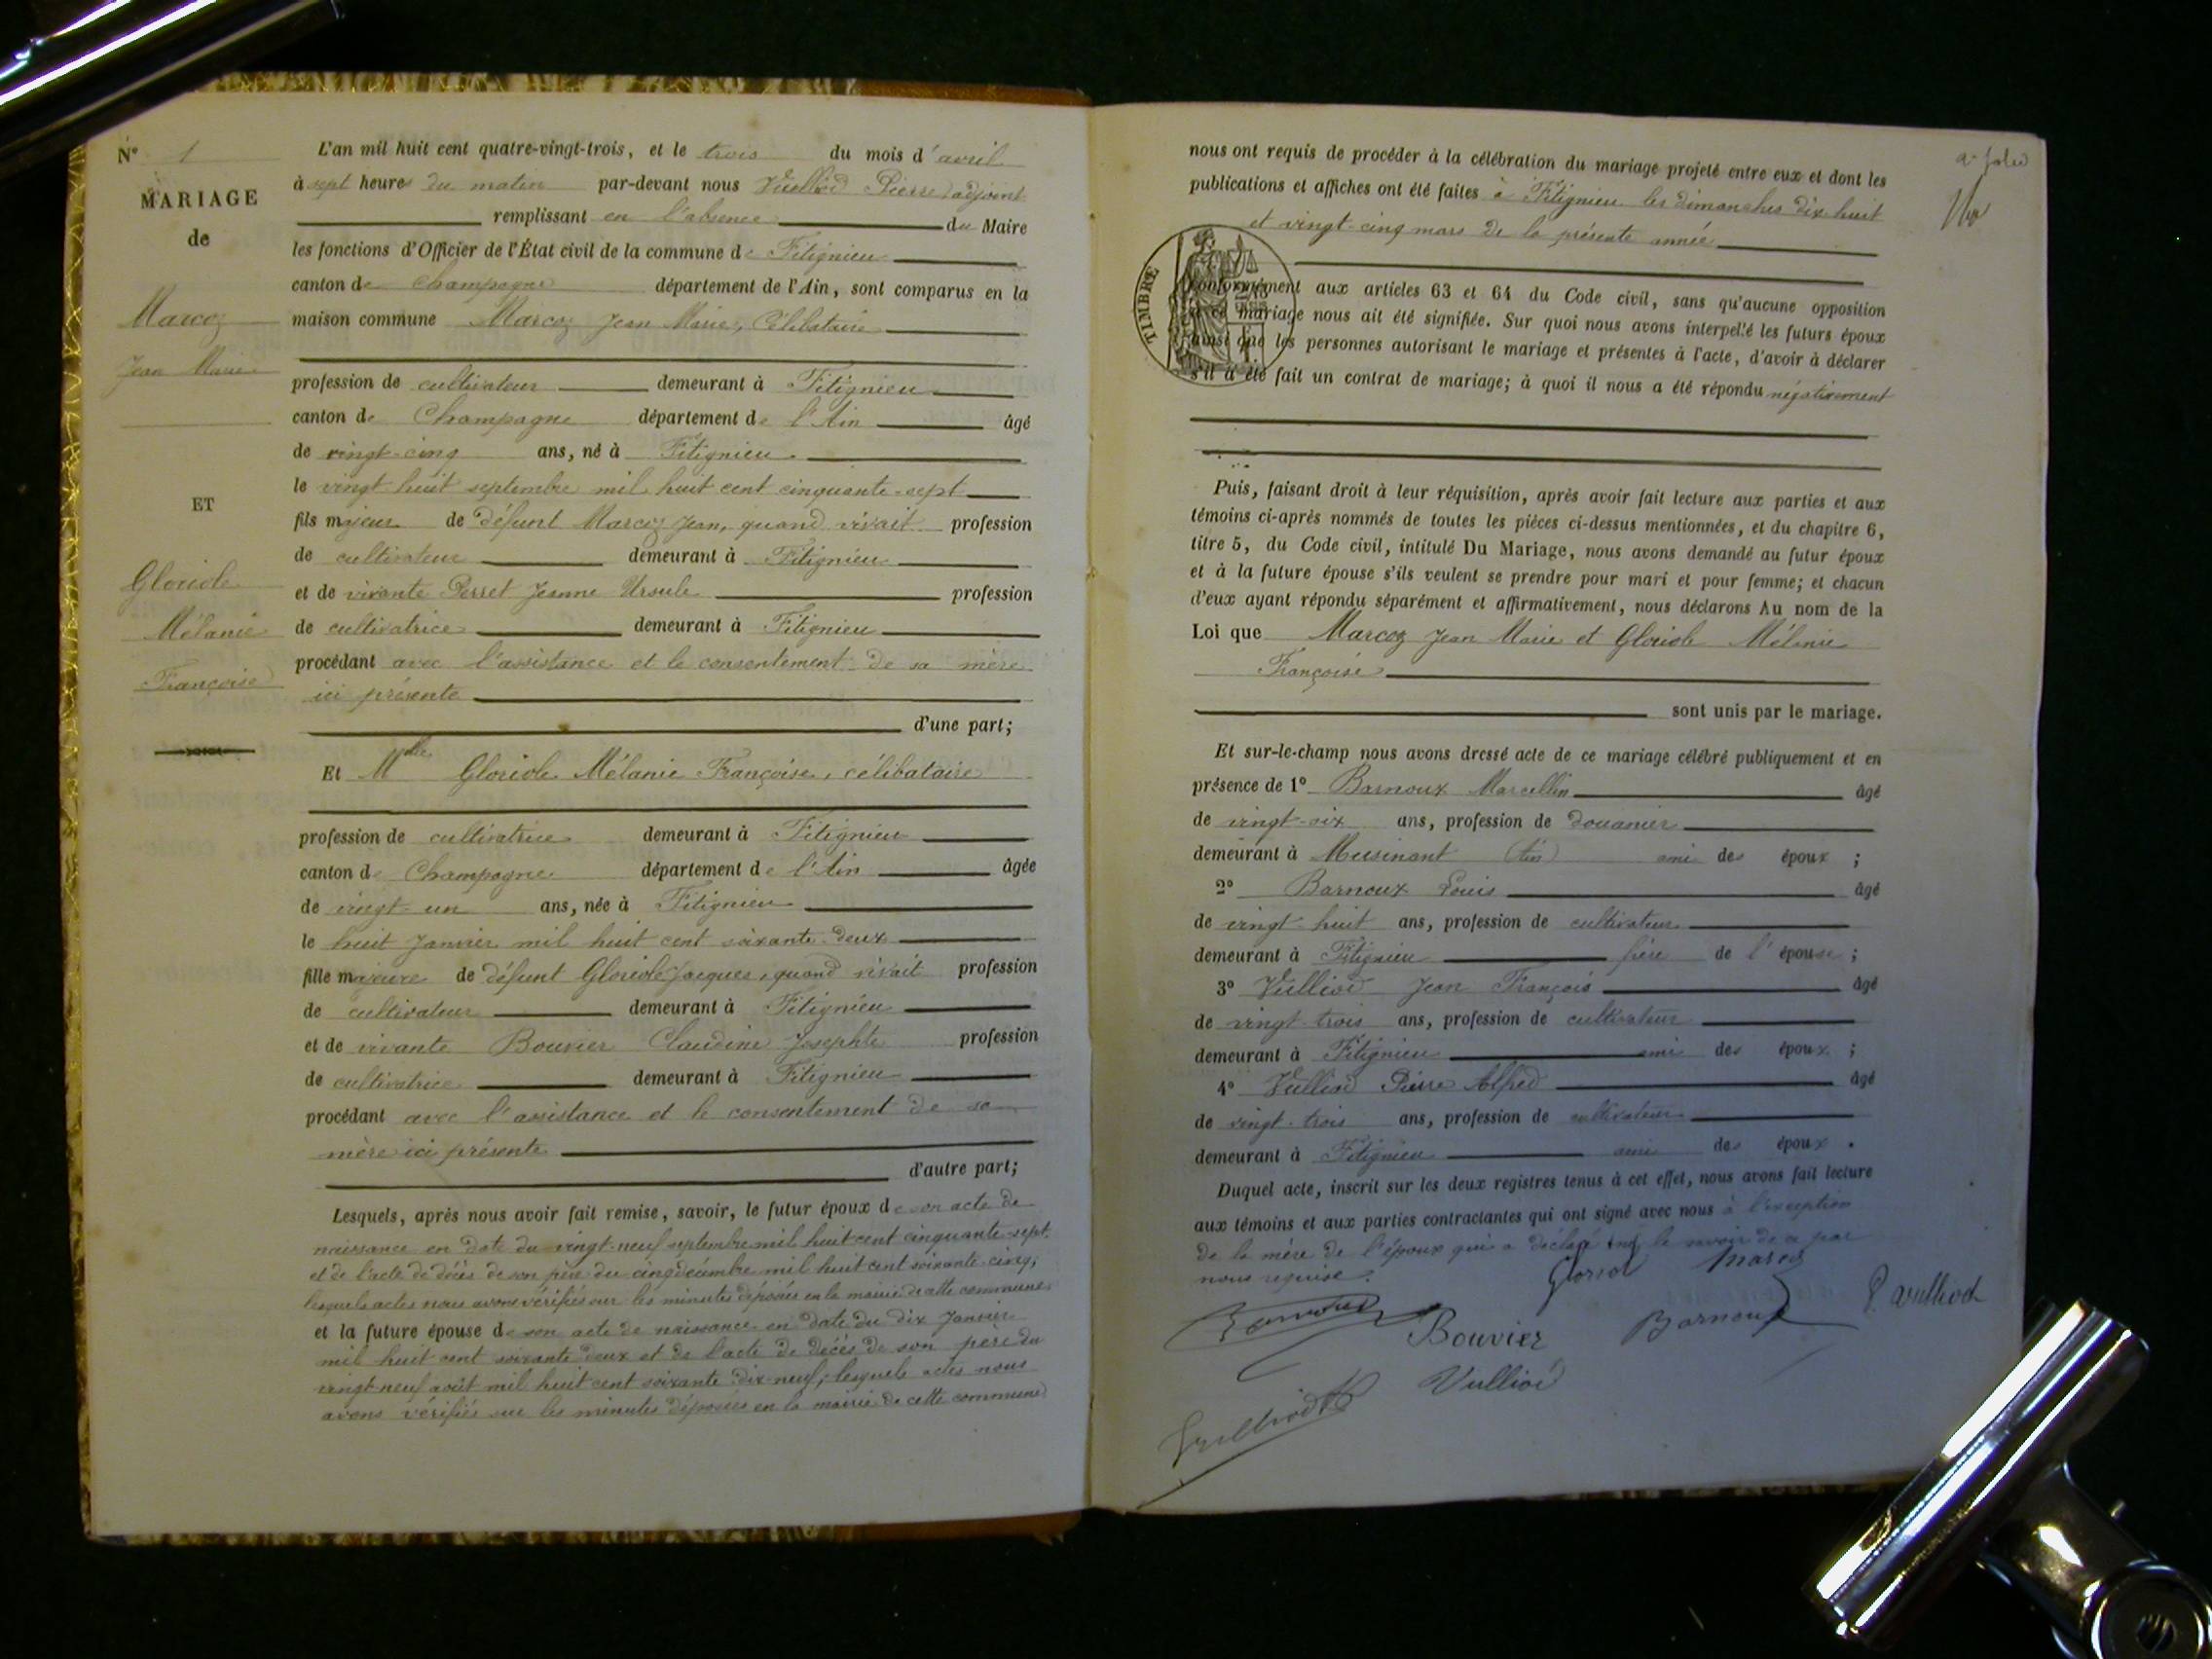 N° 1
MARIAGE
de
Marcoz
Jean Marie
ET
Gloriole
Mélanie
Françoise
L'an mil huit cent quatre-vingt-trois, et le trois du mois d'avril
à sept heures du matin par-devant nous Vuilliod Pierre, adjoint
remplissant en l'absence du Maire
les fonctions d'Officier de l'État civil de la commune de Fitignieu
canton de Champagne département de l'Ain, sont comparus en la
maison commune Marcoz Jean Marie, Célibataire
profession de cultivateur demeurant à Fitignieu
canton de Champagne département de l'Ain âgé
de vingt-cinq ans, né à Fitignieu
le vingt huit septembre mil huit cent cinquante-sept
fils majeur de défunt Marcoz Jean, quand vivait profession
de cultivateur demeurant à Fitignieu
et de vivante Perret Jeanne Ursule profession
de cultivatrice demeurant à Fitignieu
procédant avec l'assistance et le consentement de sa mère
ici présente
d'une part;
Et Mlle Gloriole Mélanie Françoise, célibataire
profession de cultivatrice demeurant à Fitignieu
canton de Champagne département de l'Ain âgée
de vingt-un ans, née à Fitignieu
le huit Janvier mil huit cent soixante-deux
fille majeure de défunt Gloriole Jacques, quand vivait profession
de cultivateur demeurant à Fitignieu
et de vivante Bouvier Claudine Josephte profession
de cultivatrice demeurant à Fitignieu
procédant avec l'assistance et le consentement de sa
mère ici présente
d'autre part;
Lesquels, après nous avoir fait remise, savoir, le futur époux de son acte de
naissance en date du vingt-neuf septembre mil huit cent cinquante-sept
et de l'acte de décès de son père du cinq décembre mil huit cent soixante-cinq;
lesquels actes nous avons vérifiés sur les minutes déposées en la mairie de cette commune
et la future épouse de son acte de naissance en date du dix Janvier
mil huit cent soixante deux et de l'acte de décès de son père du
vingt-neuf août mil huit cent soixante-dix-neuf; lesquels actes nous
avons vérifiés sur les minutes déposées en la mairie de cette commune
nous ont requis de procéder à la célébration du mariage projeté entre eux et dont les
publications et affiches ont été faites à Fitignieu les dimanches dix huit
et vingt-cinq mars de la présente année
TIMBRE
Conformément aux articles 63 et 64 du Code civil, sans qu'aucune opposition
à ce mariage nous ait été signifiée. Sur quoi nous avons interpellé les futurs époux
ainsi que les personnes autorisant le mariage et présentes à l'acte, d'avoir à déclarer
s'il a été fait un contrat de mariage; à quoi il nous a été répondu négativement
Puis, faisant droit à leur réquisition, après avoir fait lecture aux parties et aux
témoins ci-après nommés de toutes les pièces ci-dessus mentionnées, et du chapitre 6,
titre 5, du Code civil, intitulé Du Mariage, nous avons demandé au futur époux
et à la future épouse s'ils veulent se prendre pour mari et pour femme; et chacun
d'eux ayant répondu séparément et affirmativement, nous déclarons Au nom de la
Loi que Marcoz Jean Marie et Gloriole Mélanie
Françoise
sont unis par le mariage.
Et sur-le-champ nous avons dressé acte de ce mariage célébré publiquement et en
présence de 1° Barnoux Marcellin âgé
de vingt-six ans, profession de douanier
demeurant à Musinant (Ain) ami des époux ;
2° Barnoux Louis âgé
de vingt huit ans, profession de cultivateur
demeurant à Fitignieu frère de l'épouse ;
3° Vuilliod Jean François âgé
de vingt trois ans, profession de cultivateur
demeurant à Fitignieu ami des époux ;
4° Vuilliod Pierre Alfred âgé
de vingt-trois ans, profession de cultivateur
demeurant à Fitignieu ami des époux.
Duquel acte, inscrit sur les deux registres tenus à cet effet, nous avons fait lecture
aux témoins et aux parties contractantes qui ont signé avec nous à l'exception
de la mère de l'époux qui a déclaré le savoir de ce par
nous requise.
Barnoux
Bouvier
Barnoux
P. Vulliod
Vulliod